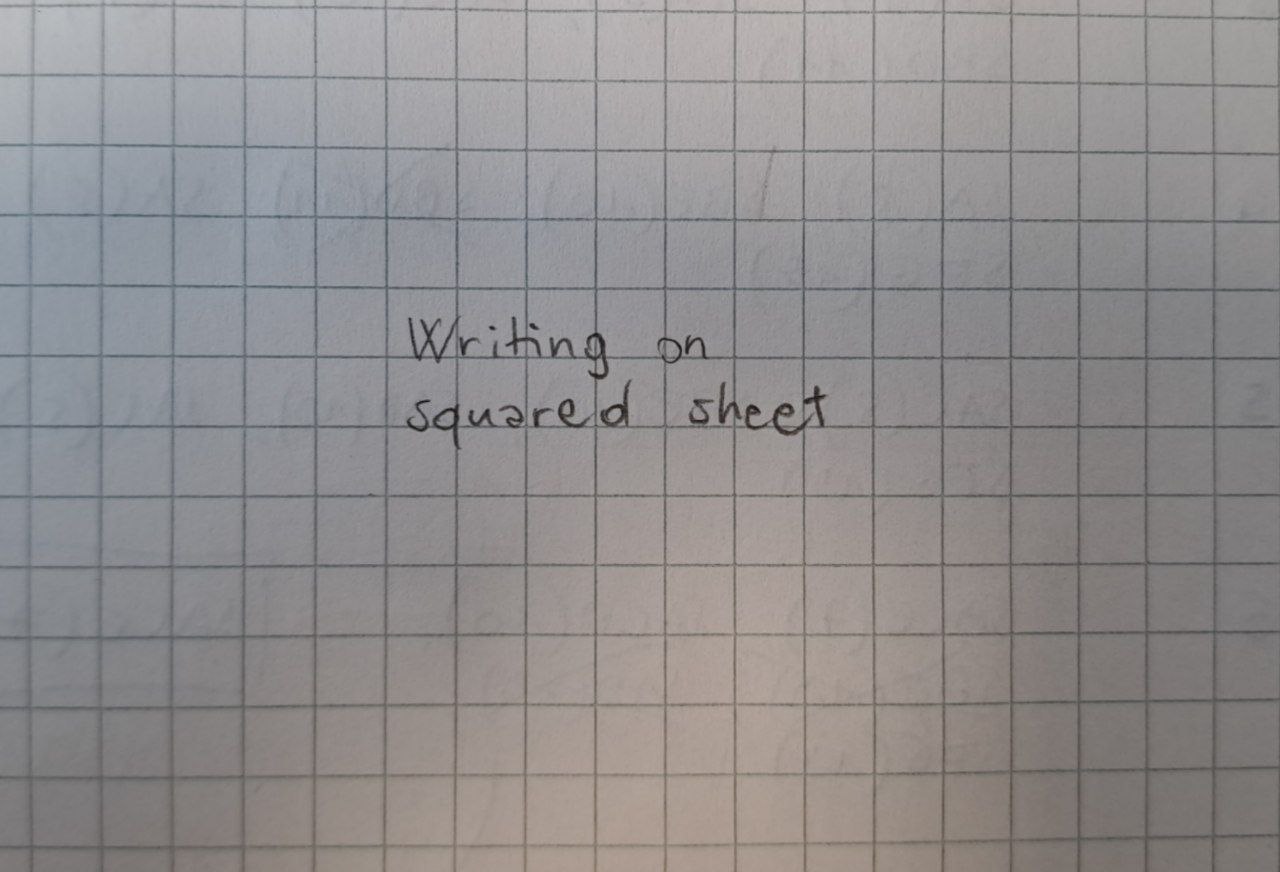 Writing on
squared sheet